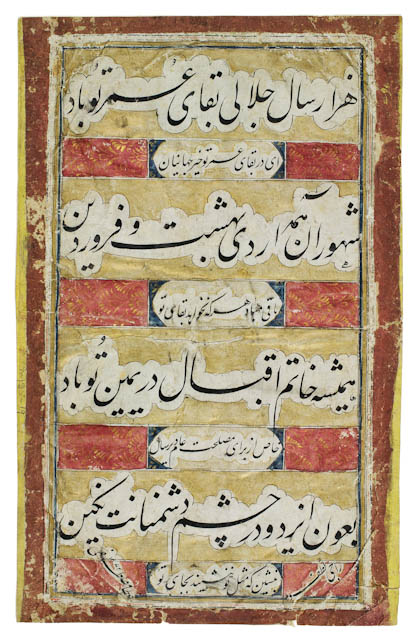 هزار سال جلالی بقای عمر تو باد
ای در بقای عمر تو خیر جهانیان
شهور آن همه اردی بهشت و فروردین
باقی مباد هر که نخواهد بقای تو
همیشه خاتم اقبال در یمین تو باد
خاص از برای مصلحت عام دیر سال
بعون ایزد و در چشم دشمنانت نگین
بنشین که مثل تو ننشیند بجای تو